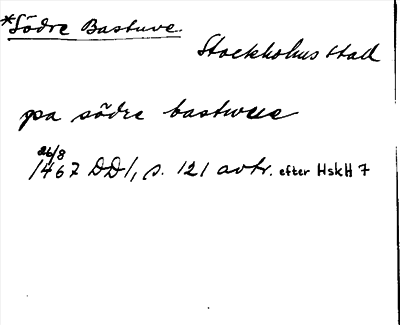 *Södre Bastuve.
Stockholms stad
pa södre bastwue
26/8
1467 DD1, s. 121 avtr. efter HskH 7